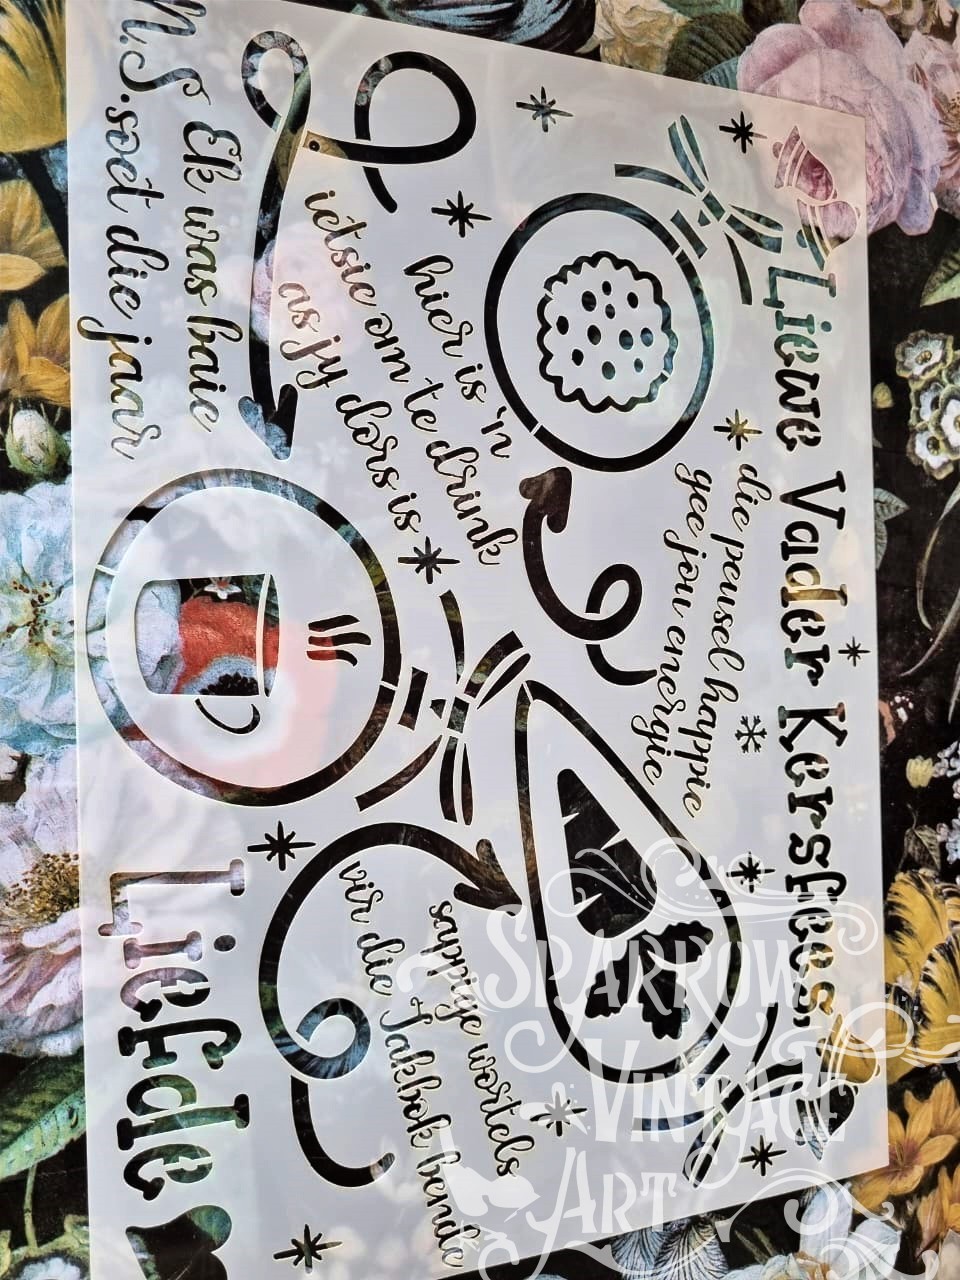 Liewe Vader Kersfees,
die peuselhappie
gee jou energie
hier is 'n
ietsie om te drink
as jy dors is
sappige wortels
vir die Takbok bende
N.S Ek was baie
soet die jaar
Liefde
SPARROW
VINTAGE
ART